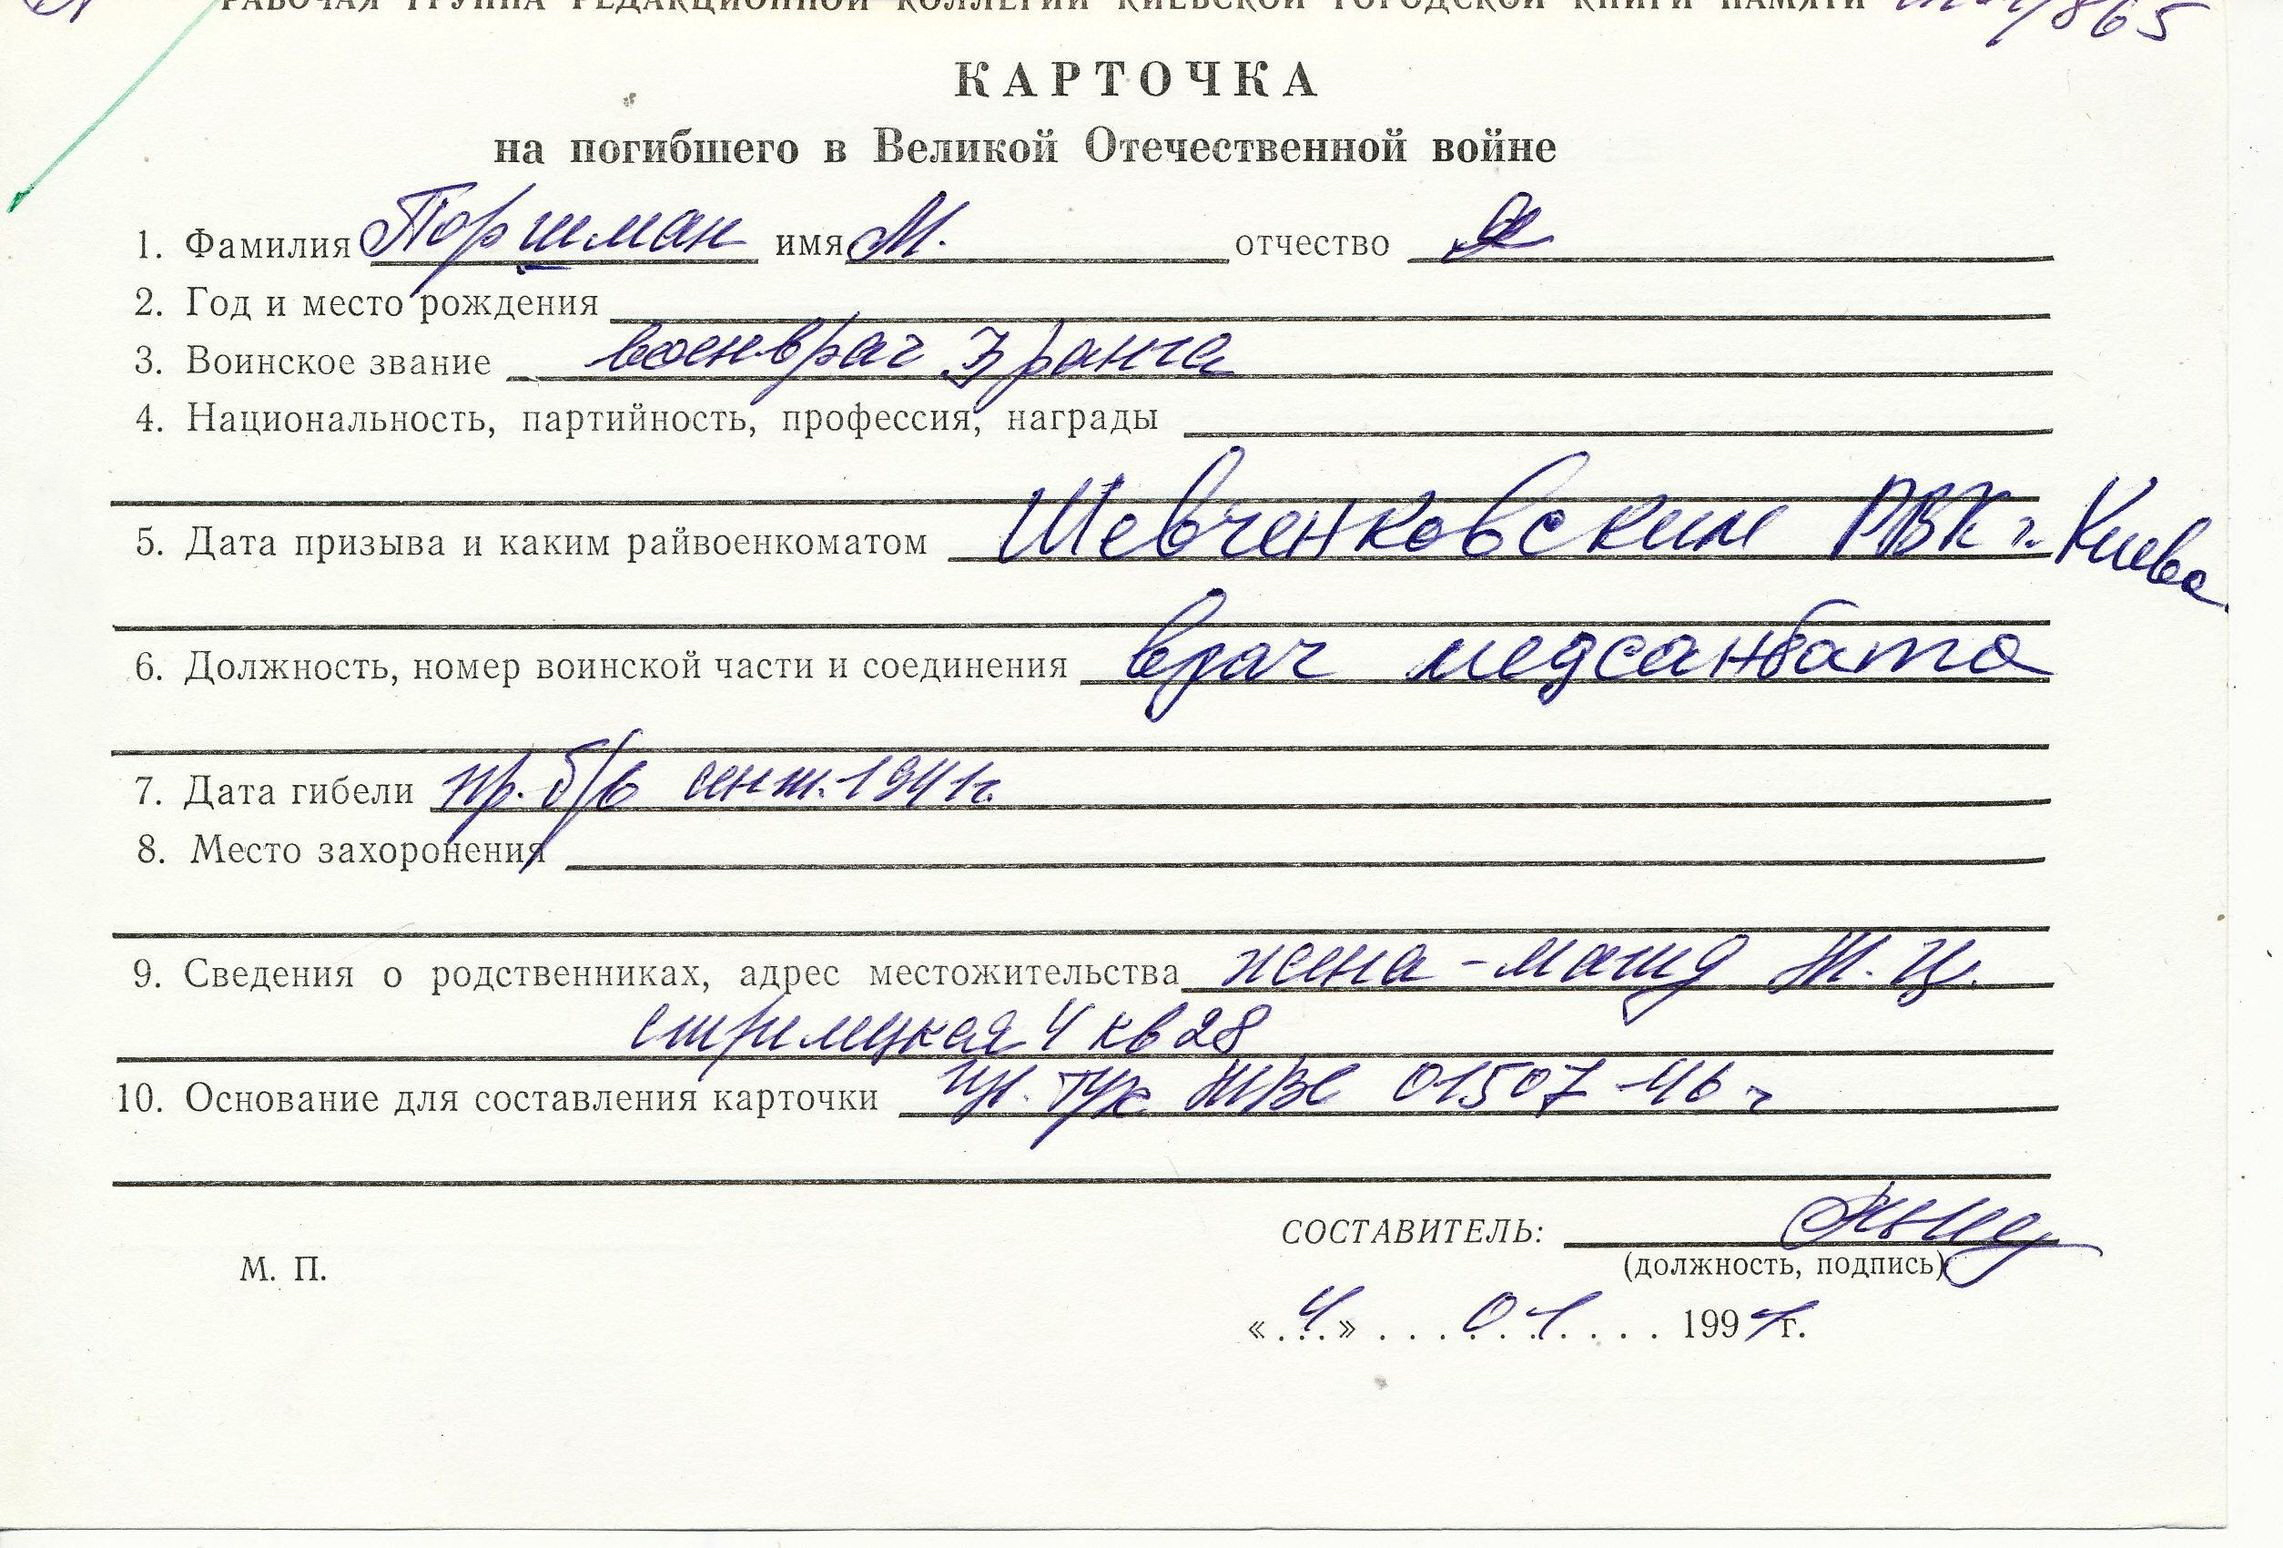 РАБОЧАЯ ГРУППА РЕДАКЦИОННОЙ КОЛЛЕГИИ КИЕВСКОЙ ГОРОДСКОЙ КНИГИ ПАМЯТИ
КАРТОЧКА
на погибшего в Великой Отечественной войне
1. Фамилия Поршман имя М. отчество Я
2. Год и место рождения
3. Воинское звание военврач 3 ранга
4. Национальность, партийность, профессия, награды
5. Дата призыва и каким райвоенкоматом Шевченковским РВК г. Киева
6. Должность, номер воинской части и соединения врач медсанбата
7. Дата гибели пр. б/в сент. 1941г.
8. Место захоронения
9. Сведения о родственниках, адрес местожительства жена - Ж. Ц.
стрилецкая 4 кв 28
10. Основание для составления карточки 01507-46 г
СОСТАВИТЕЛЬ:
(должность, подпись)
М. П.
«4» 01 1991г.